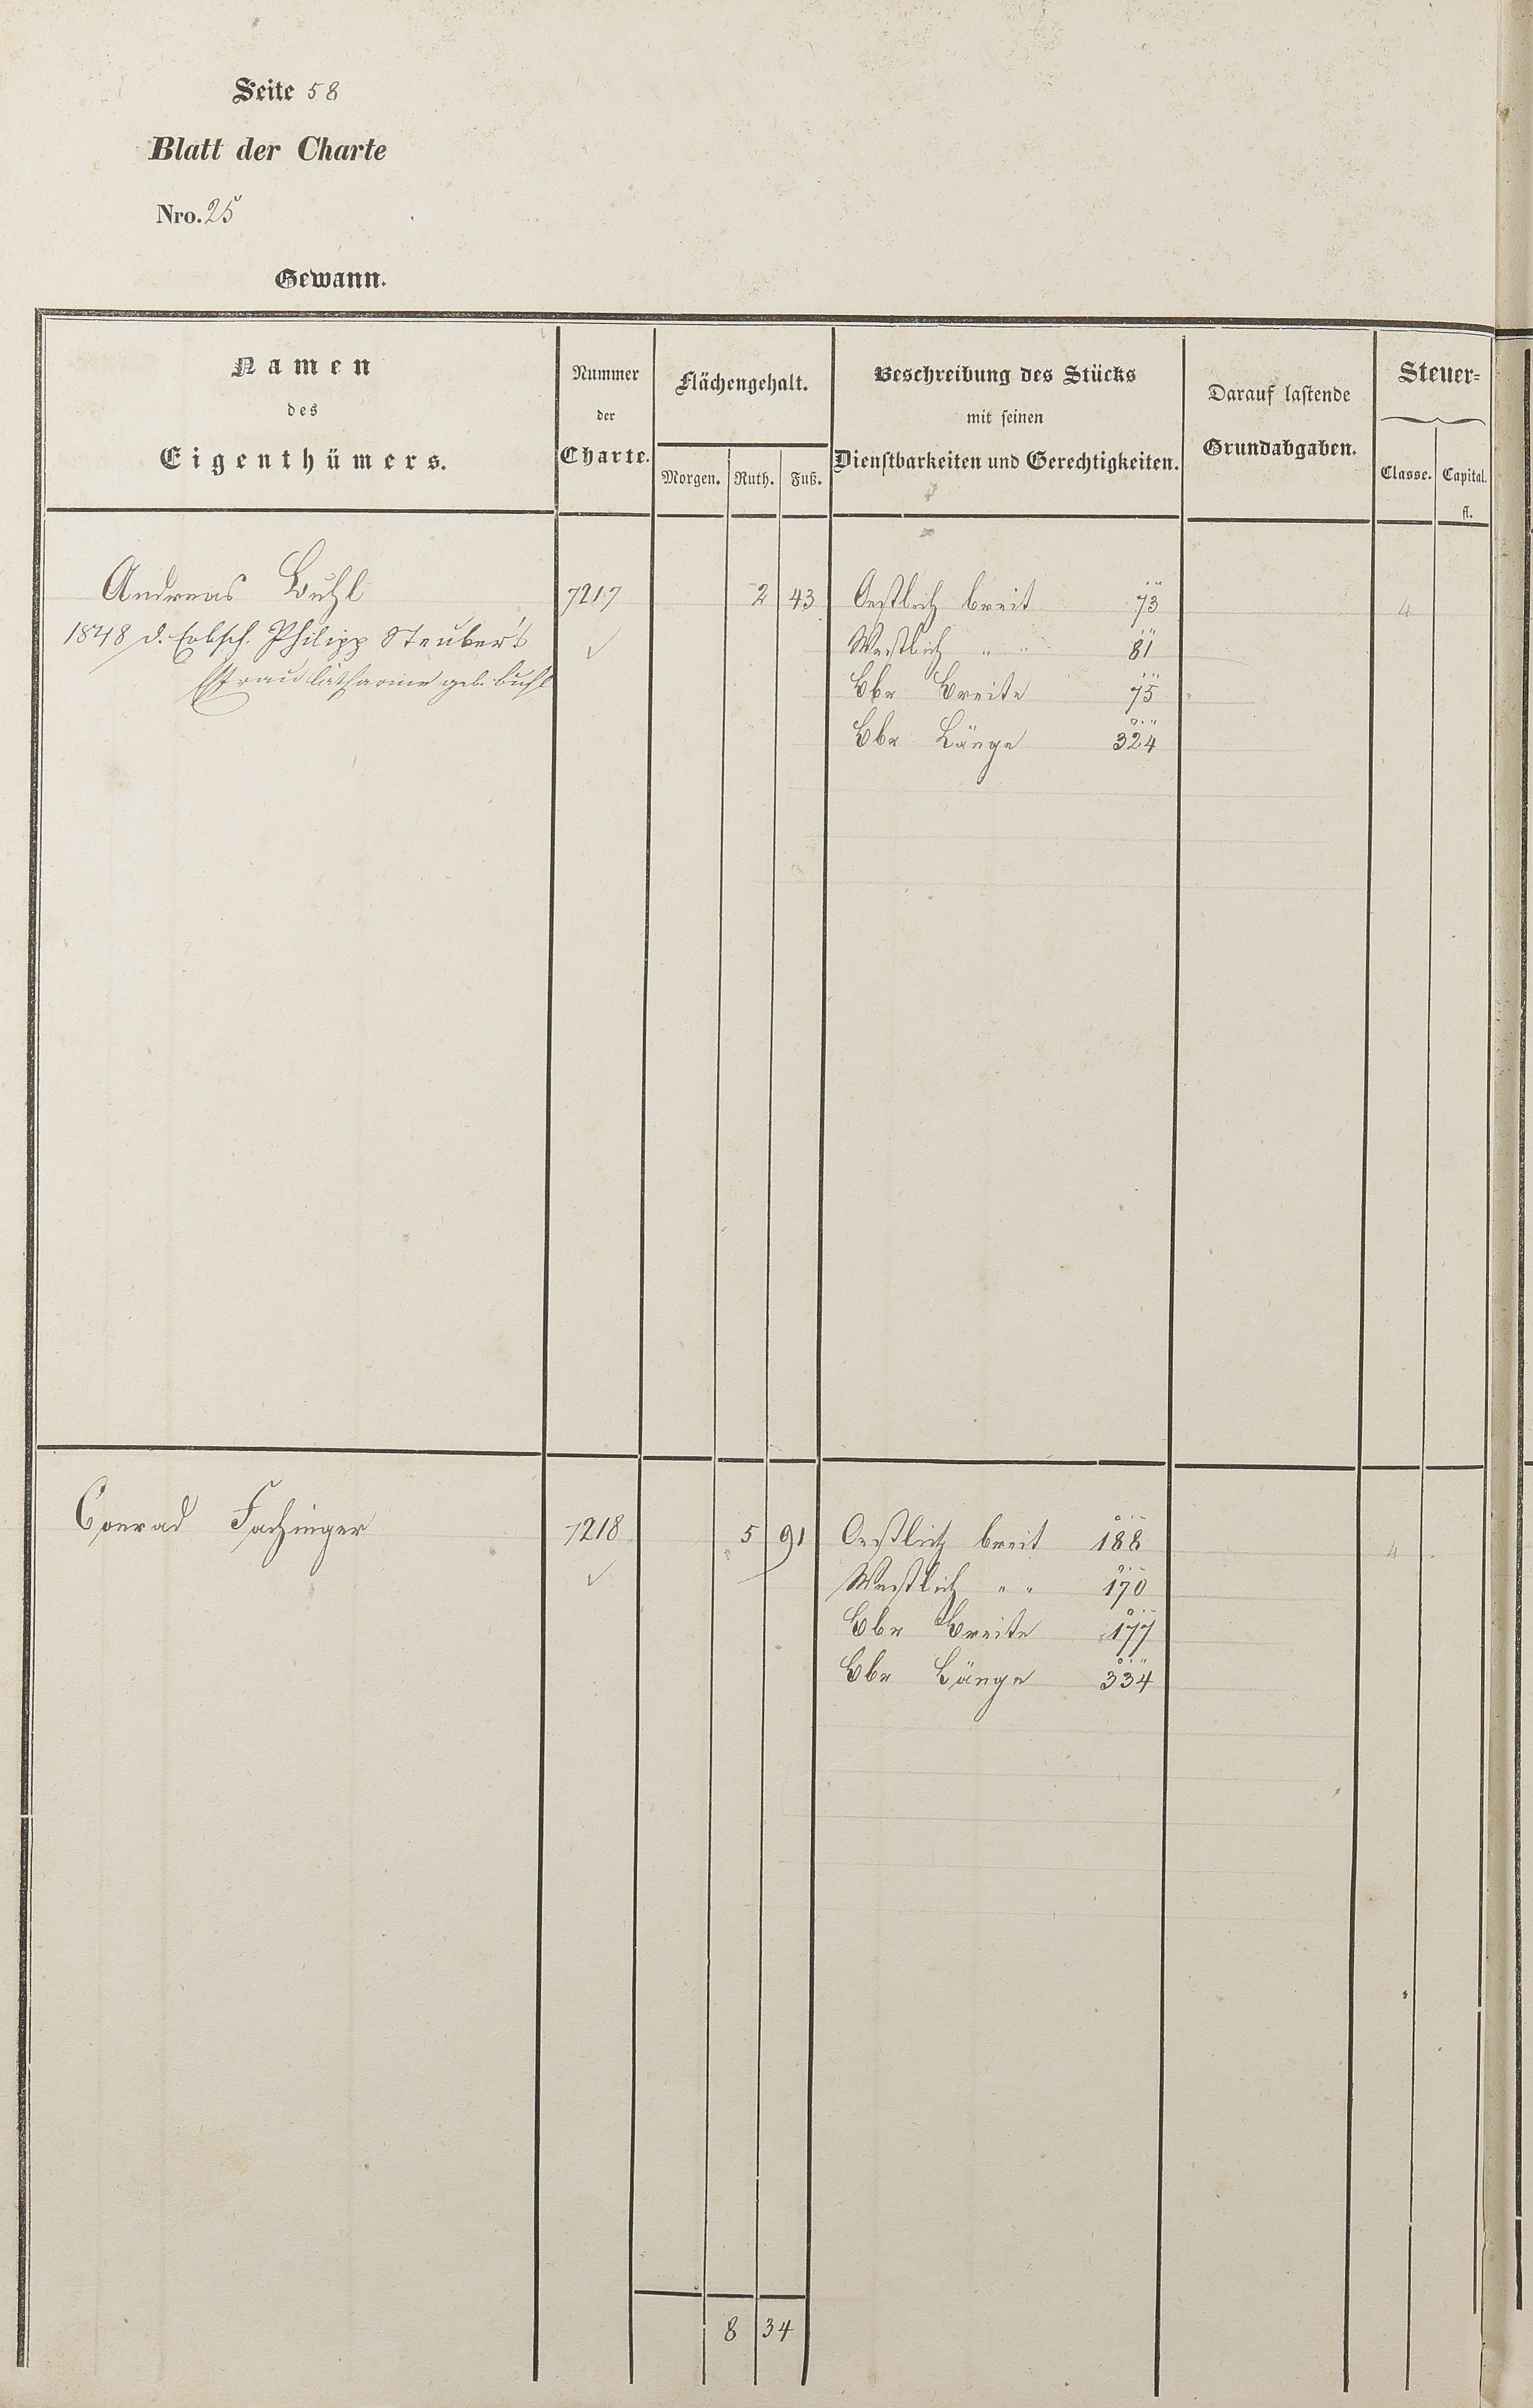 Seite 58
Blatt der Charte
Nro. 25
Gewann.
Namen
des
Eigenthümers.
Nummer
der
Charte.
Flächengehalt.
Morgen. Ruth. Fuß.
Beschreibung des Stücks
mit seinen
Dienstbarkeiten und Gerechtigkeiten.
Darauf lastende
Grundabgaben.
Steuer=
Classe. Capital.
fl.
Andreas Buhl 7217 2 43 Oestlich breit 73 4
1848 d. Erbsch. Philipp Steuber's ✓ Westlich " " 81
Ehefrau Catharine geb. Buhl Ebr Breite 75
Ebr Länge 324
Conrad Fachinger 7218 5 91 Oestlich breit 188 4
✓ Westlich " " 170
Ebr Breite 177
Ebr Länge 334
8 34